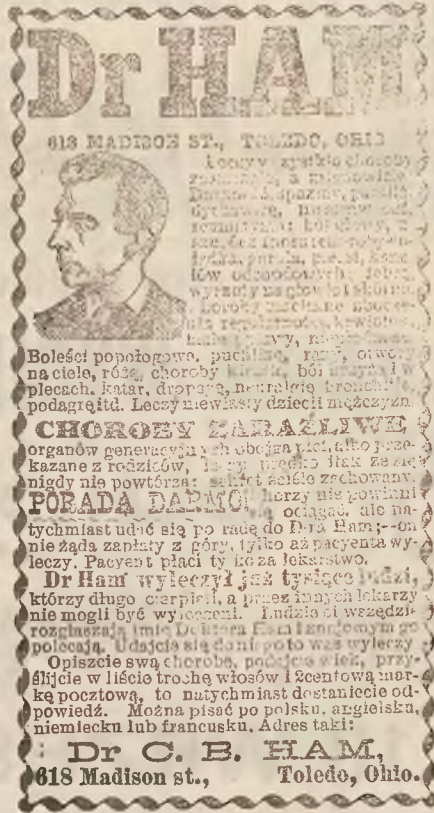 Dr HAM
618 MADISON ST., TOLEDO, OHIO
Leczy wszystkie choroby
a mianowicie
spazmy,
dychawicę,
żołądka, gardła, piersi,
odchodowych, febrę,
wyrzuty na głowie i skórne
Boleści popołogowe, puchlinę, rany, otwory
na ciele, różę, choroby kiszek, ból krzyża i w
plecach. katar, dropsyę, neuralgię bronchitis,
podagrę itd. Leczy niewiasty dzieci i mężczyzn
CHOROBY ZARAŹLIWE
organów generacyjnych obojga płci, albo prze-
kazane z rodziców, leczy prędko i tak że się
nigdy nie powtórzą: sekret ściśle zachowany.
PORADA DARMO! Chorzy nie powinni
się ociągać, ale na-
tychmiast udać się po radę do D-ra Ham;--on
nie żąda zapłaty z góry, tylko aż pacyenta wy-
leczy. Pacyent płaci tylko za lekarstwo.
Dr Ham wyleczył już tysiące ludzi,
którzy długo cierpieli, a przez innych lekarzy
nie mogli być wyleczeni. Ludzie ci wszędzie
rozgłaszają imię Doktora Ham i znajomym go
polecają. Udajcie się doń: poto was wyleczy
Opiszcie swą chorobę, podajcie wiek, przy-
ślijcie w liście trochę włosów i 2centową mar-
kę pocztową, to natychmiast dostaniecie od-
powiedź. Można pisać po polsku, angielsku,
niemiecku lub francusku. Adres taki:
Dr C. B. HAM,
618 Madison st., Toledo, Ohio.